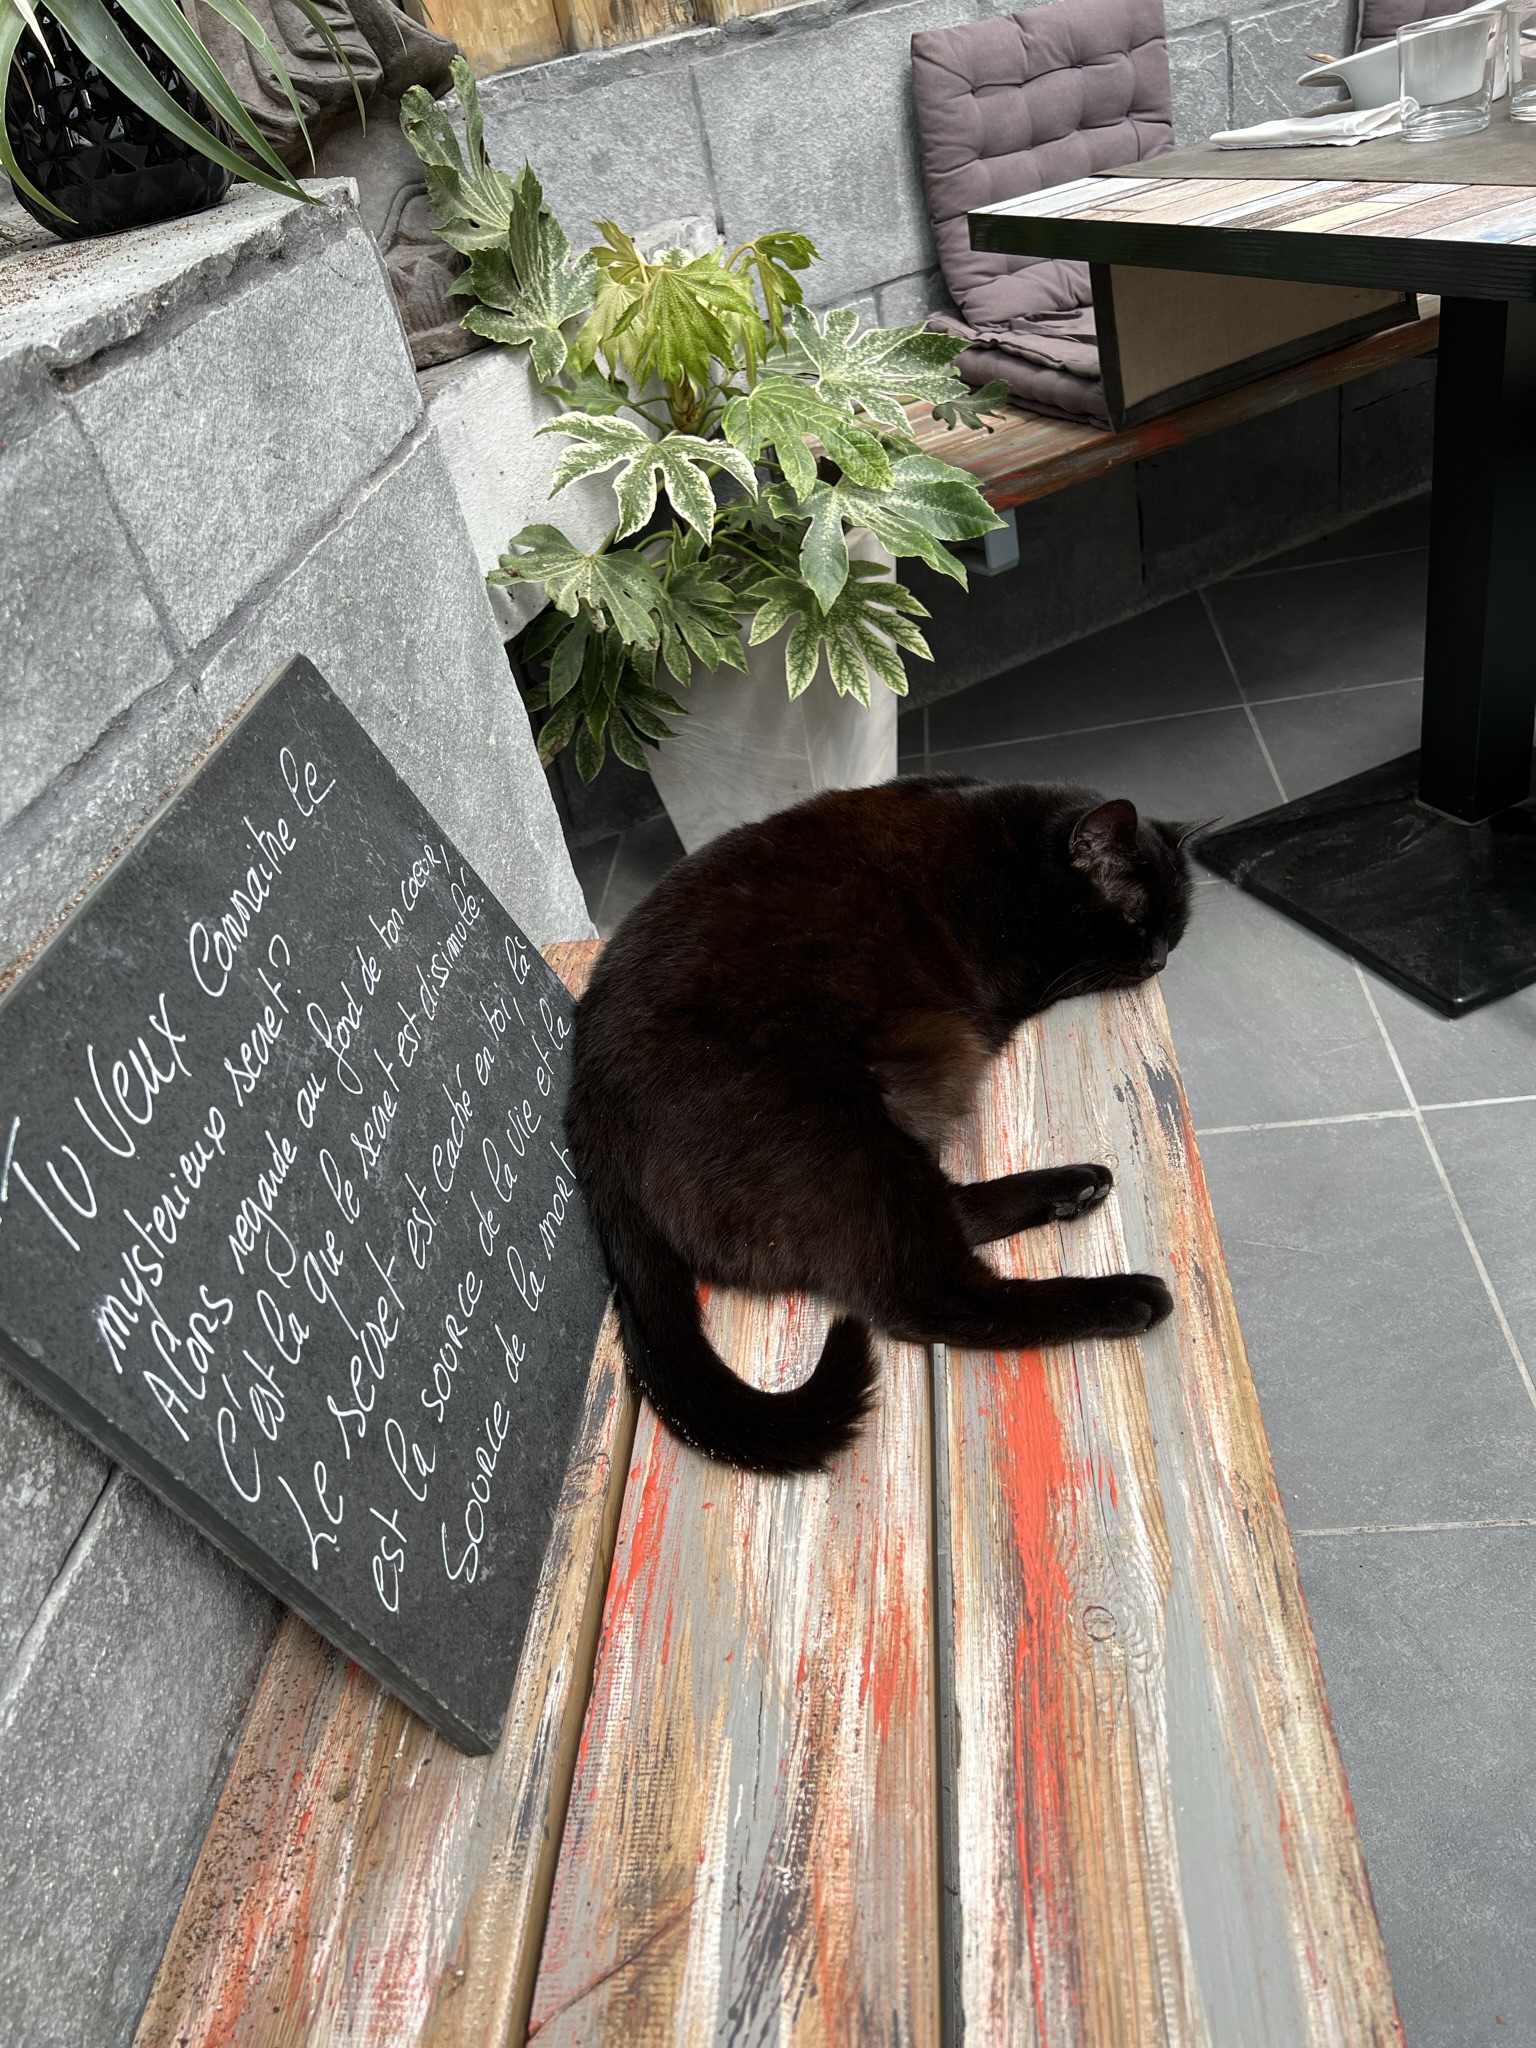 Tu veux connaitre le
mysterieux secret?
Alors regarde au fond de ton coeur,
C'est là que le secret est dissimulé.
Le secret est caché en toi, là
est la source de la vie et la
source de la mort